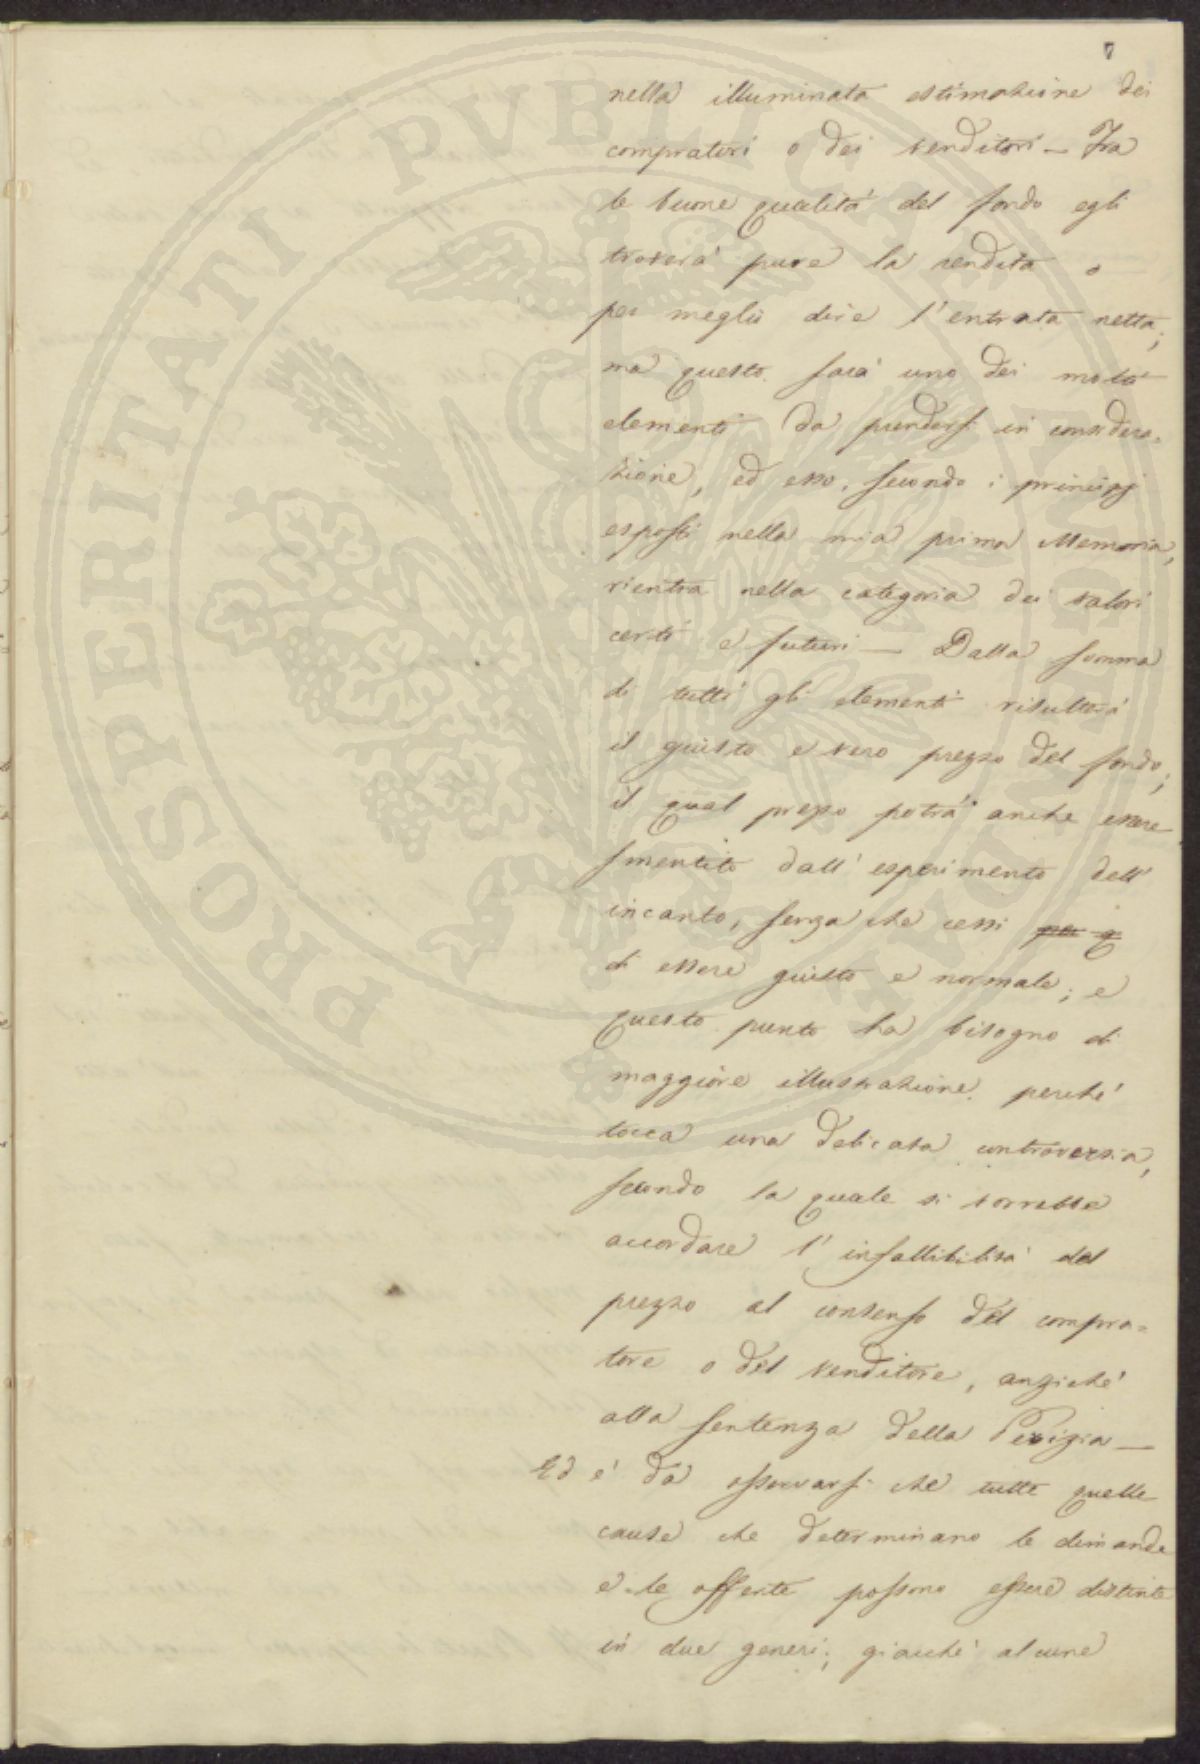 7
nella illuminata estimazione dei
compratori o dei venditori — Fra
le buone qualità del fondo egli
troverà pure la rendita o
per meglio dire l'entrata netta;
ma questo sarà uno dei molti
elementi da prendersi in considera-
zione, ed esso, secondo i principj
esposti nella mia prima Memoria,
rientra nella categoria dei valori
certi e futuri — Dalla somma
di tutti gli elementi risulterà
il giusto e vero prezzo del fondo;
il qual prezzo potrà anche essere
smentito dall'esperimento dell'
incanto, senza che cessi per q
di essere giusto e normale; e
questo punto ha bisogno di
maggiore illustrazione perchè
tocca una delicata controversia,
secondo la quale si vorrebbe
accordare l'infallibilità del
prezzo al consenso del compra-
tore o del venditore, anzichè
alla sentenza della Perizia —
Ed è da osservarsi che tutte quelle
cause che determinano le dimande
e le offerte possono essere distinte
in due generi; giacchè alcune
PROSPERITATI PVBLICAE AVGENDAE